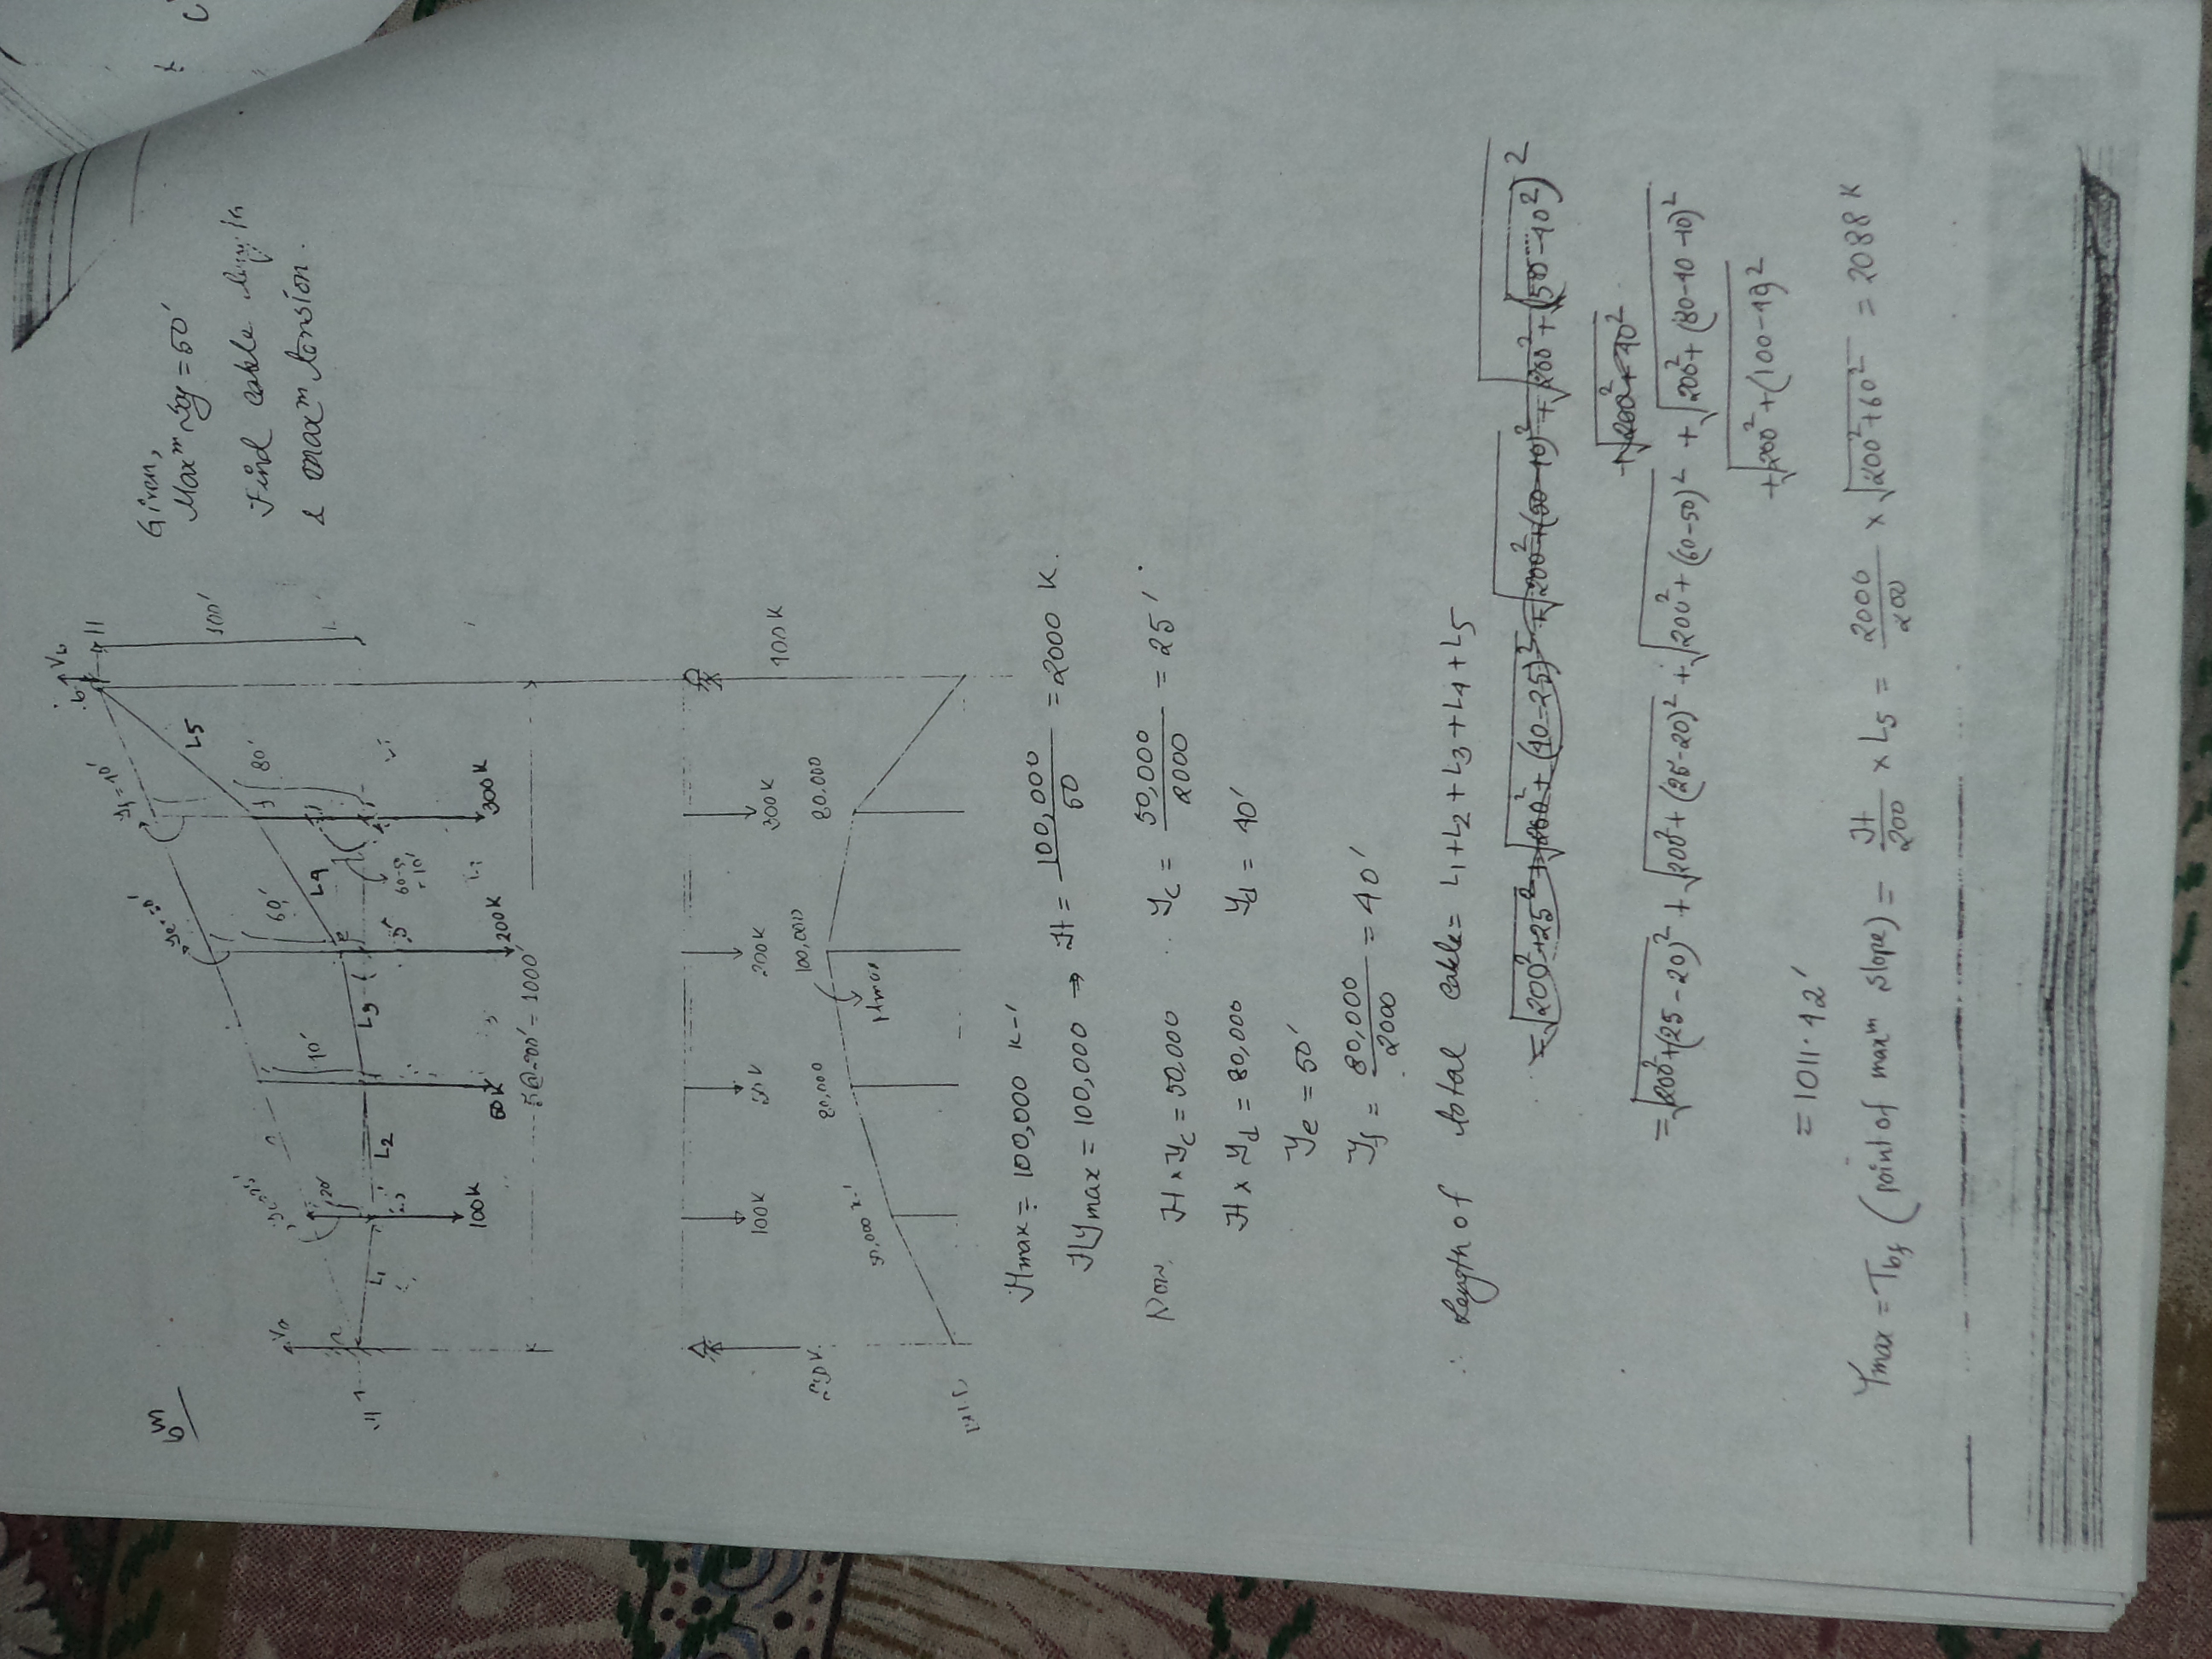 6m
Given,
Max^m sag = 50'
Find cable length
& max^m tension.
V_b
b
H
100'
L5
80'
60'
40'
20'
L1
L2
L3
L4
60-50 = 10'
5'
100K
50K
200K
300K
5@200' = 1000'
100K
200K
300K
400K
50,000 k-'
80,000
100,000
80,000
Mmax
Mmax = 100,000 k-'
Hymax = 100,000 ⇒ H = 100,000/50 = 2000 K.
Now, H × y_c = 50,000 ∴ y_c = 50,000/2000 = 25'
H × y_d = 80,000 y_d = 40'
y_e = 50'
y_f = 80,000/2000 = 40'
∴ Length of total cable = L1 + L2 + L3 + L4 + L5
= √200²+25² + √200²+(40-25)² + √200²+(50-40)² + √200²+(50-40²)²
+ √200²+40²
= √200²+(25-20)² + √200²+(25-20)² + √200²+(60-50)² + √200²+(80-10-10)²
+ √200²+(100-19)²
= 1011.42'
Ymax = T_bf (point of max^m slope) = H/200 × L5 = 2000/200 × √200²+60² = 2088 K